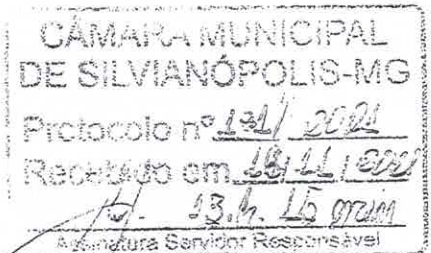 CÂMARA MUNICIPAL
DE SILVIANÓPOLIS-MG
Protocolo nº 131/2021
Recebido em 18/11/2021
13.h. 15 min
Assinatura Servidor Responsável